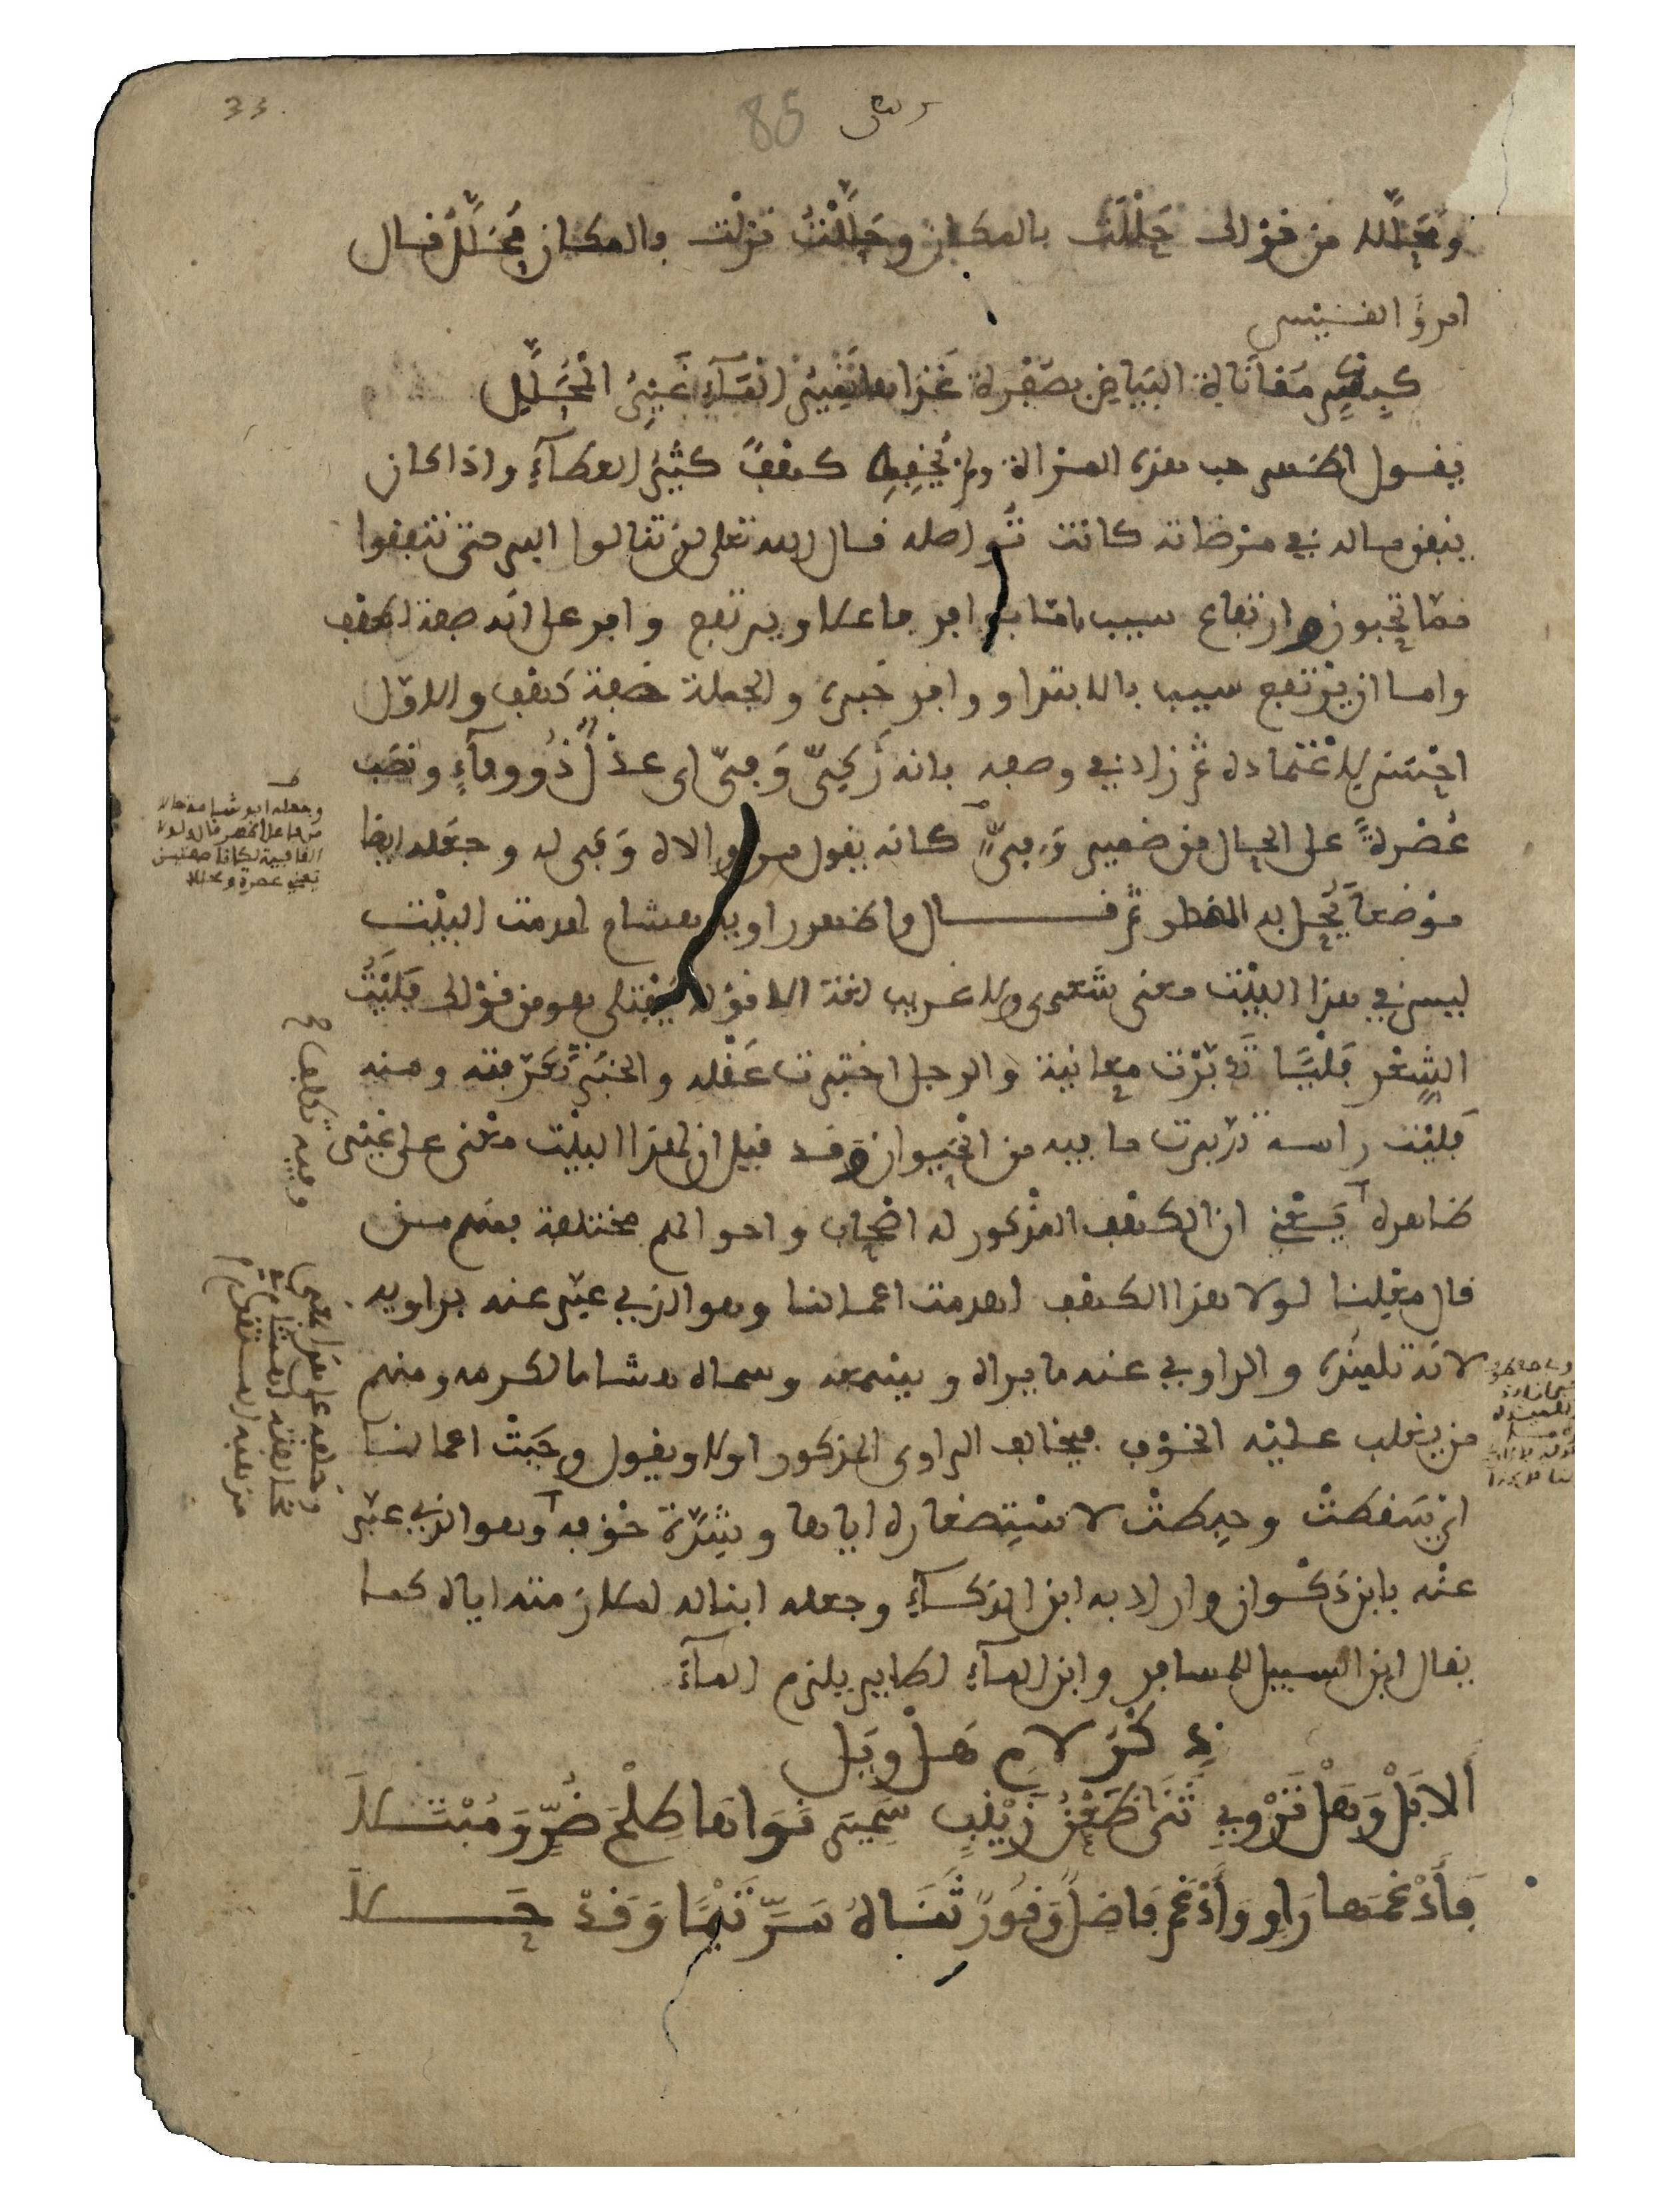 33
85
ومُحَلّلا من قولك حَلَلْتُ بالمكان وحَلَّلْتُ نزلت والمكان مُحَلَّلٌ قال
امرؤ القيس
كبكر مقاناة البياض بصفرة غذاها نمير الماء غير المحلّل
يقول اظهر حب هذه المرأة ولم يخفه كهف كثير العطاء واذا كان
ينفق ماله في مرضاته كانت تواصله قال الله تعلى لن تنالوا البر حتى تنفقوا
مما تحبون وارتفاع سيب اما بوافر فاعلا ويرتفع وافر على انه صفة لكهف
واما ان يرتفع سيب بالابتدا ووافر خبره والجملة صفة كهف والاول
احسن للاعتماده ثم زاد في وصفه بانه زكيّ وفيّ اى عدل ذو وفاء ونصب
عُصْرةً على الحال من ضمير وفيّ كانه يقول من والاه وفى له وجعله ايضا
موضعا يحل به المضطر ثم قال واظهر راويه هشام لهدمت البيت
ليس في هذا البيت معنى شعرى ولا غريب لغة الا قوله يفتلى هو من قولك فَلَيْتُ
الشعر فليا تدبّرت معانيه والرجل اختبرت عقله والخبر تعرّفته ومنه
فليت راسه تدبرت ما فيه من الحيوان وقد قيل ان لهذا البيت معنى على غير
ظاهره يَعْنِي ان الكهف المذكور له اصحاب واحوالهم مختلفة فمنهم من
قال مقيلنا لولا هذا الكهف لهدمت اعمالنا وهو الذي عبّر عنه براويه
لانه تلميذه والراوي عنه ما يراه ويسمعه وسماه هشاما لكرمه ومنهم
من يغلب عليه الخوف فيخالف الراوى المذكور اولا ويقول وجبت اعمالنا
اى سقطت وحبطت لاستصغاره اياها وشدّة خوفه وهو الذي عبّر
عنه بابن ذكوان واراد به ابن الذكاء وجعله ابنا له لملازمته اياه كما
يقال ابن السبيل للمسافر وابن الماء لطاير يلزم الماء
ذكر لام هل وبل
ألا بل وهل تروي ثنا ظعن زينب سمير نواها طلح ضر ومبتلا
فأدغمها راو وأدغم فاضل وقور ثناه سر تيما وقد حلا
وجعله ابو شامة حالا
من فاعل اظهر قال ولولا
القافية لكانا صفتين
يعني عصرة ومحللا